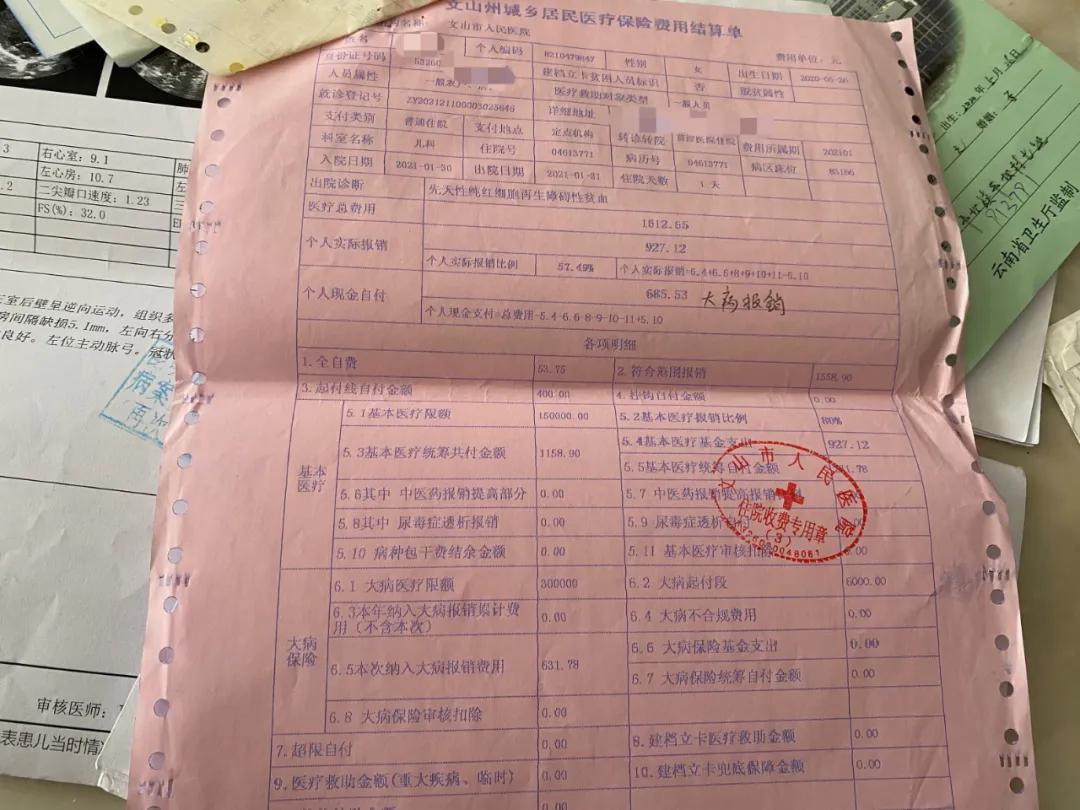 文山州城乡居民医疗保险费用结算单
文山市人民医院
费用单位：元
身份证号码 53260 个人编码 8210479847 性别 女 出生日期 2020-05-26
人员属性 建档立卡贫困人员标识 否 脱贫属性
医疗救助对象类型 一般人员
就诊登记号 ZY202121100003025646 详细地址
支付类别 普通住院 支付地点 定点机构 转诊转院 费用所属期 202101
科室名称 儿科 住院号 04613771 病历号 04613771 病区床位
入院日期 2021-01-30 出院日期 2021-01-31 住院天数 1 天
出院诊断 先天性纯红细胞再生障碍性贫血
医疗总费用 1612.65
个人实际报销 927.12
个人实际报销比例 57.49% 个人实际报销=5.4+6.6+8+9+10+11-5.10
个人现金自付 685.53 大病报销
个人现金支付=总费用-5.4-6.6-8-9-10-11+5.10
各项明细
1.全自费 53.75 2.符合范围报销 1558.90
3.起付线自付金额 400.00 4.挂钩自付金额 0.00
基本医疗
5.1基本医疗限额 150000.00 5.2基本医疗报销比例 80%
5.3基本医疗统筹共付金额 1158.90 5.4基本医疗基金支出 927.12
5.5基本医疗统筹自付金额 1.78
5.6其中 中医药报销提高部分 0.00 5.7 中医药报销提高报销
5.8其中 尿毒症透析报销 0.00 5.9 尿毒症透析自付
5.10 病种包干费结余金额 0.00 5.11 基本医疗审核扣除 0.00
文山市人民医院
住院收费专用章
(3)
大病保险
6.1 大病医疗限额 300000 6.2 大病起付段 6000.00
6.3本年纳入大病报销累计费用（不含本次） 0.00 6.4 大病不合规费用 0.00
6.5本次纳入大病报销费用 631.78 6.6 大病保险基金支出 0.00
6.7 大病保险统筹自付金额 0.00
6.8 大病保险审核扣除 0.00
7.超限自付 0.00 8.建档立卡医疗救助金额 0.00
9.医疗救助金额(重大疾病、临时) 0.00 10.建档立卡兜底保障金额 0.00
右心室：9.1
左心房：10.7
二尖瓣口速度：1.23
FS(%)：32.0
室后壁呈逆向运动，组织多
房间隔缺损5.1mm，左向右分
良好。左位主动脉弓。冠状
病案
审核医师：
表患儿当时情
出生：
婚姻：
云南省卫生厅监制